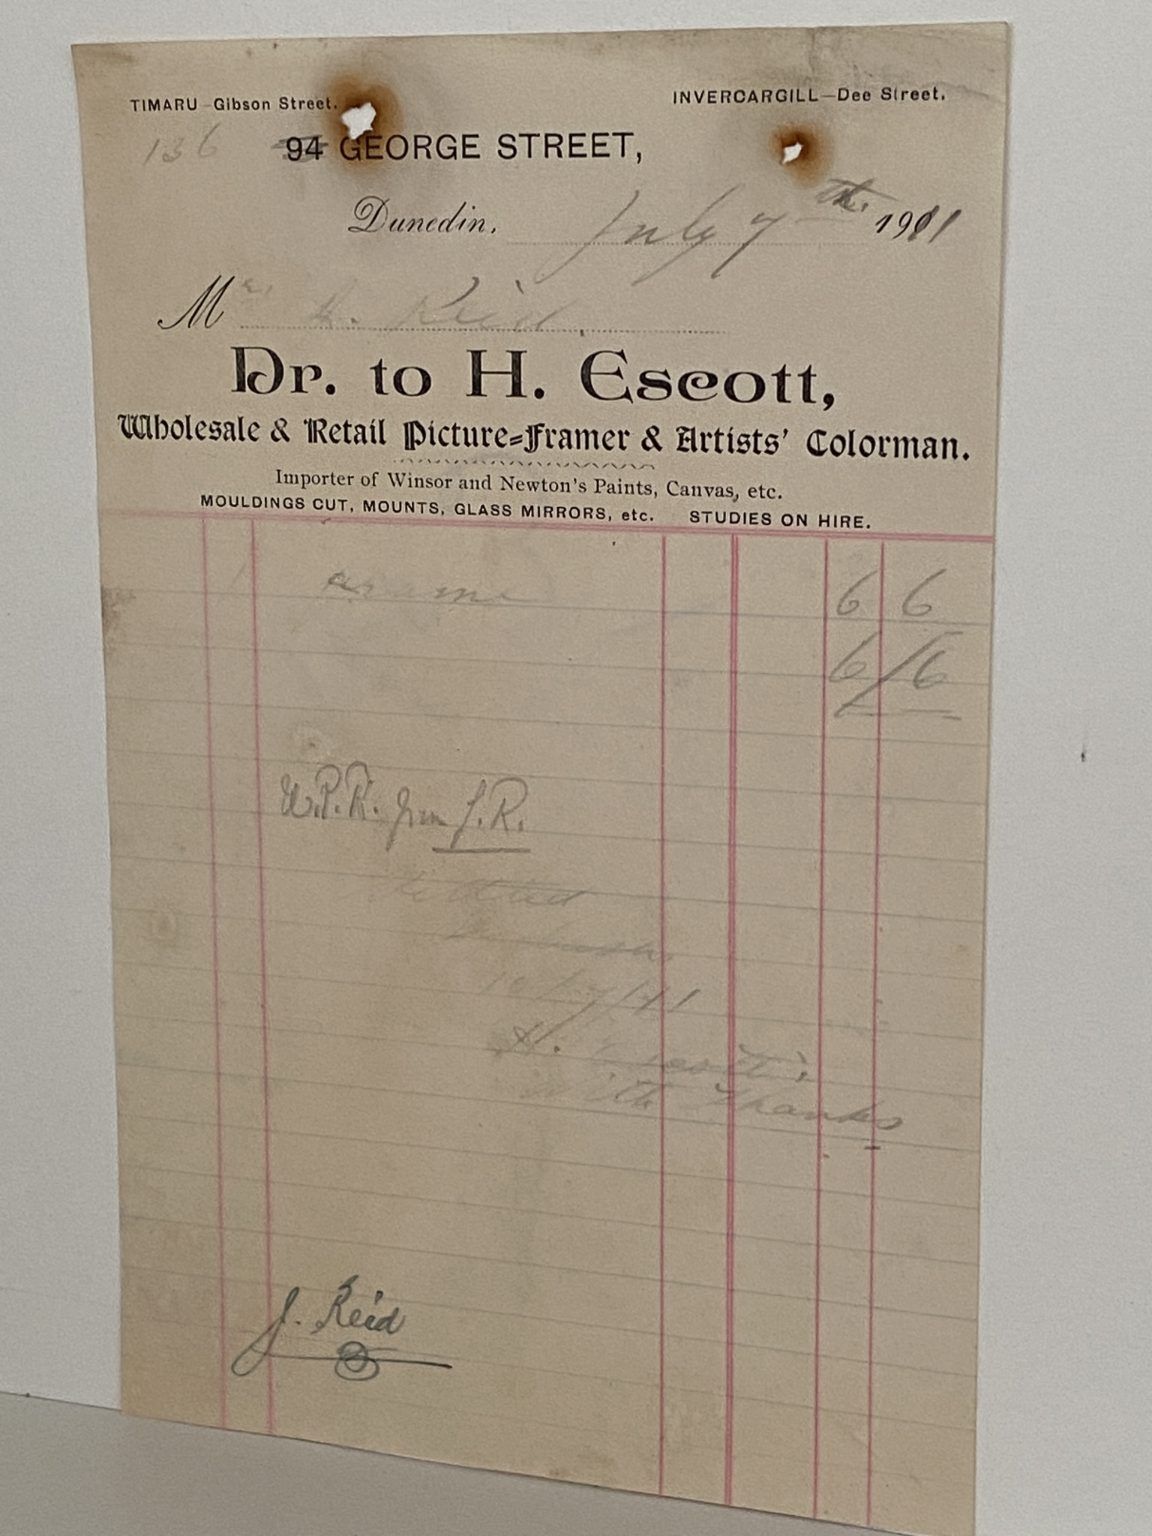 TIMARU—Gibson Street. INVERCARGILL—Dee Street.
136 94 GEORGE STREET,
Dunedin, July 7th. 1911
Mr Reid.
Dr. to H. Escott,
Wholesale & Retail Picture=Framer & Artists' Colorman.
Importer of Winsor and Newton's Paints, Canvas, etc.
MOULDINGS CUT, MOUNTS, GLASS MIRRORS, etc. STUDIES ON HIRE.
6 6
6/6
W.P.R. from J.R.
Settled
H. Escott
With Thanks
J. Reid